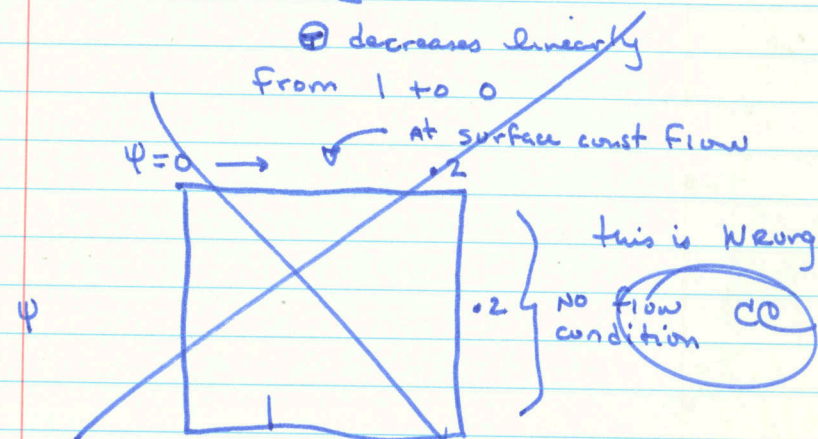 Θ decreases linearly
From 1 to 0
At surface const flow
ψ=0 → .2
this is Wrong
ψ .2 NO flow
condition